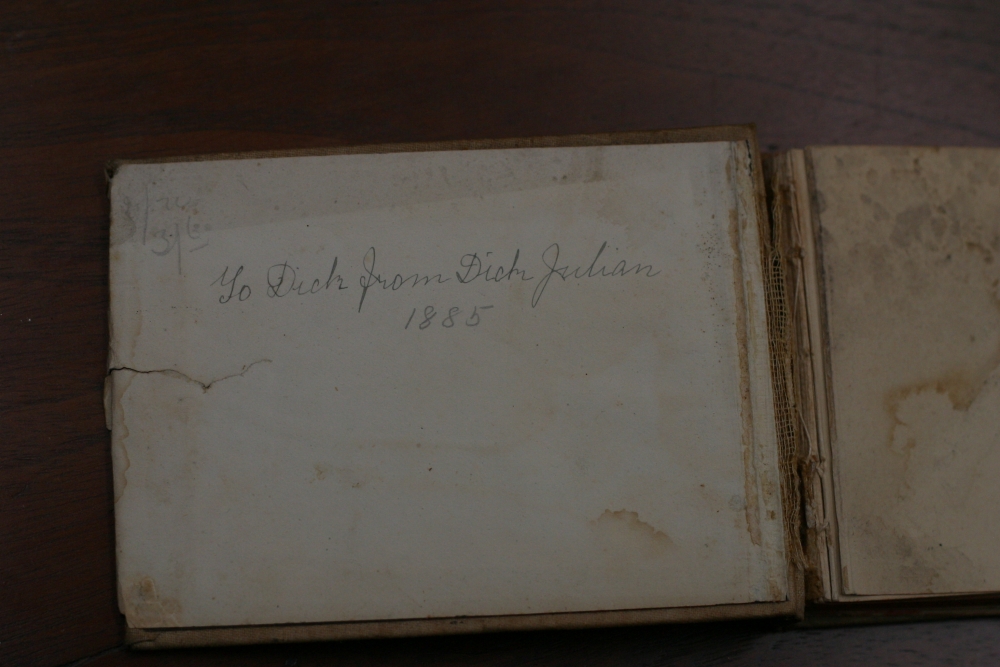 To Dick from Dick Julian
1885